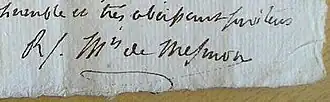 humble et tres obeissant serviteur
R/. Mis de Mesmon